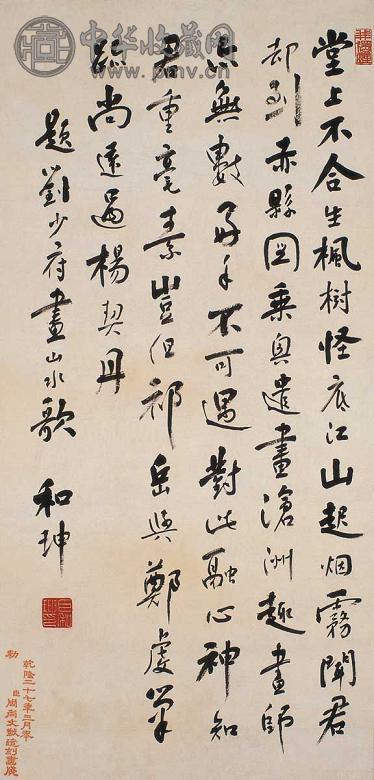 中华收藏网
堂上不合生楓樹怪底江山起烟霧聞君
却到赤縣圖乘興遣畫滄洲趣畫師
亦無數好手不可遇對此融心神知
君重毫素豈但祁岳與鄭虔筆
跡尚遠過楊契丹
題劉少府畫山水歌 和珅
乾隆二十七年三月奉
勅
臣周尚文敬